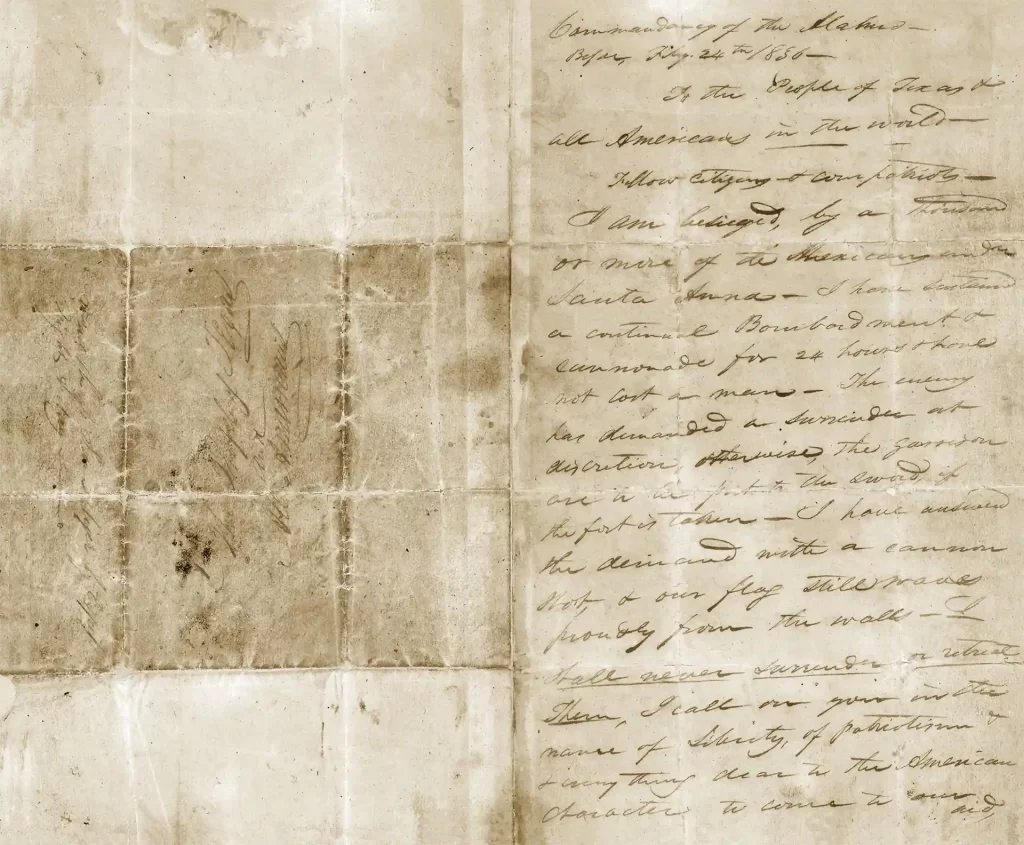 Commandancy of the Alamo—
Bejar, Fby. 24th 1836—
To the People of Texas &
all Americans in the world—
Fellow citizens & compatriots—
I am besieged, by a thousand
or more of the Mexicans under
Santa Anna — I have sustained
a continual Bombardment &
cannonade for 24 hours & have
not lost a man — The enemy
has demanded a surrender at
discretion, otherwise, the garrison
are to be put to the sword, if
the fort is taken — I have answered
the demand with a cannon
shot, & our flag still waves
proudly from the walls — I
shall never surrender or retreat
Then, I call on you in the
name of Liberty, of patriotism &
& every thing dear to the American
character, to come to our
aid,